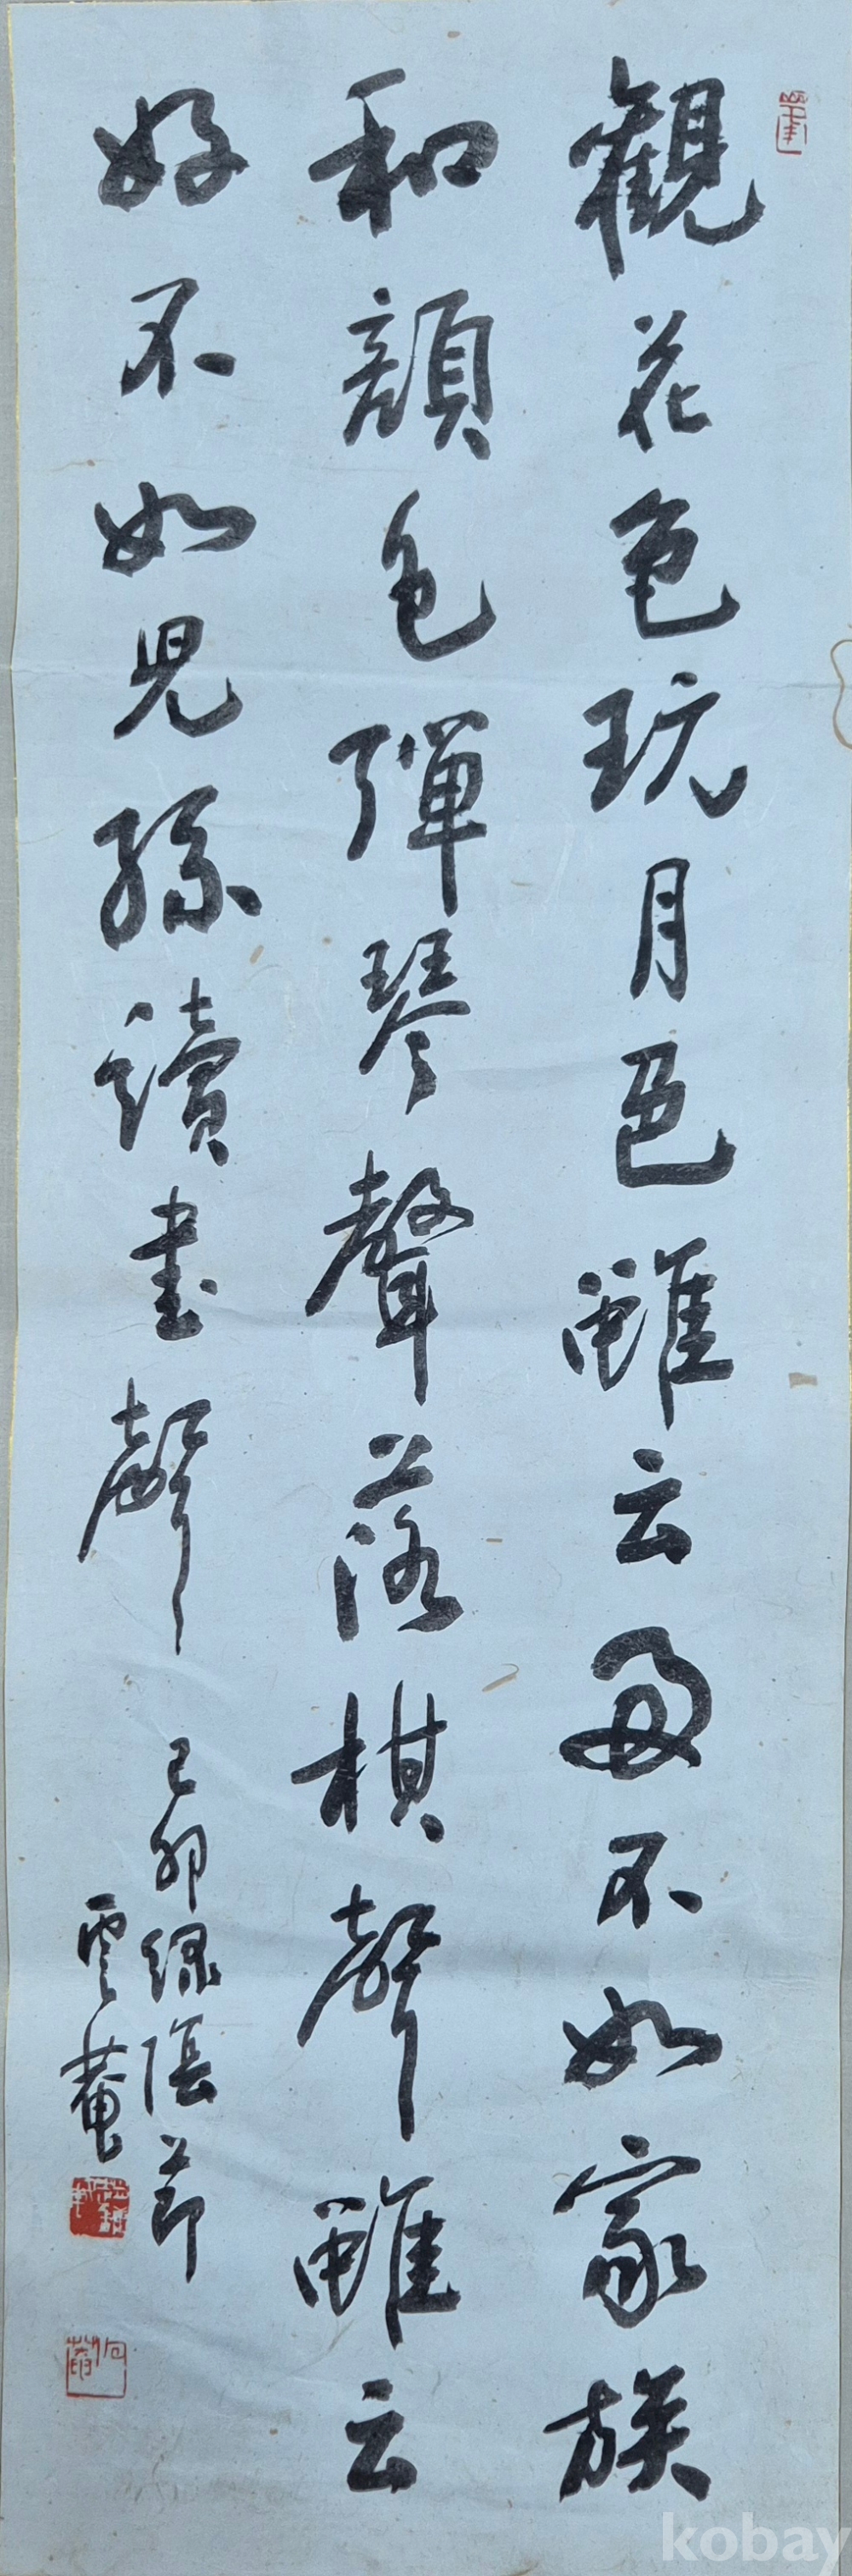 觀花色玩月色雖云多不如家族
和顔色彈琴聲落棋聲雖云
好不如児孫讀書聲
己卯綠陰節
雲菴
kobay